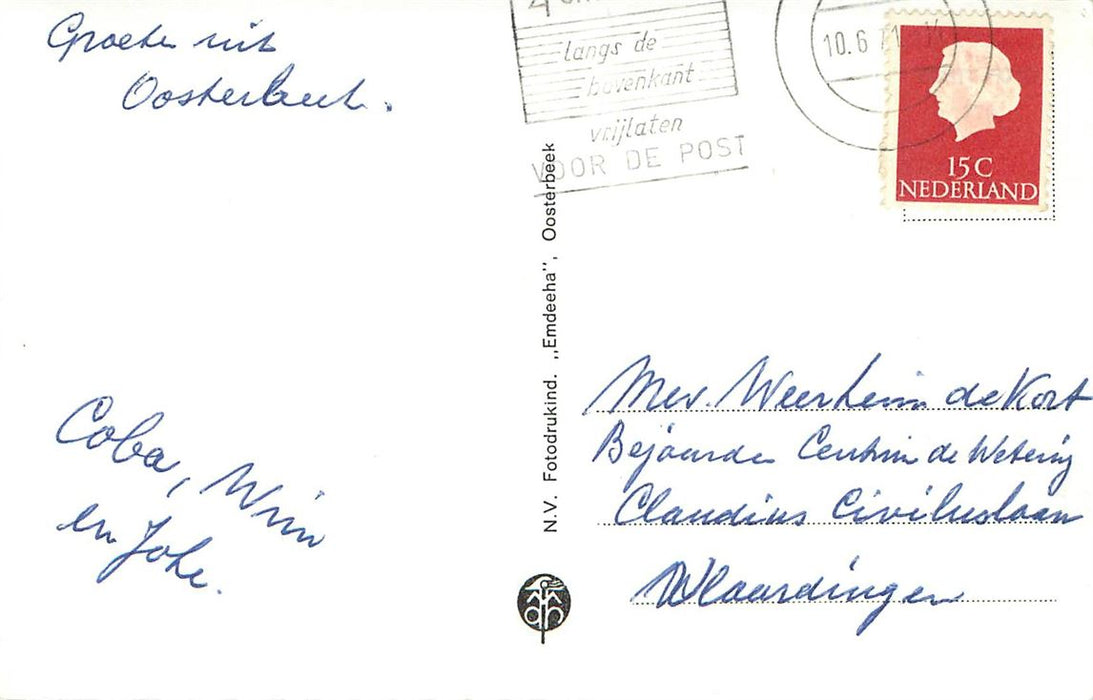 Groeten uit
Oosterhout.
Coba, Wim
en Joke.
N.V. Fotodrukind. „Emdeeha", Oosterbeek
4
langs de
bovenkant
vrijlaten
VOOR DE POST
10.6
15 C
NEDERLAND
Mev. Weerheim de Kort
Bejaarden Centrum de Wetering
Claudius Civiluslaan
Vlaardingen